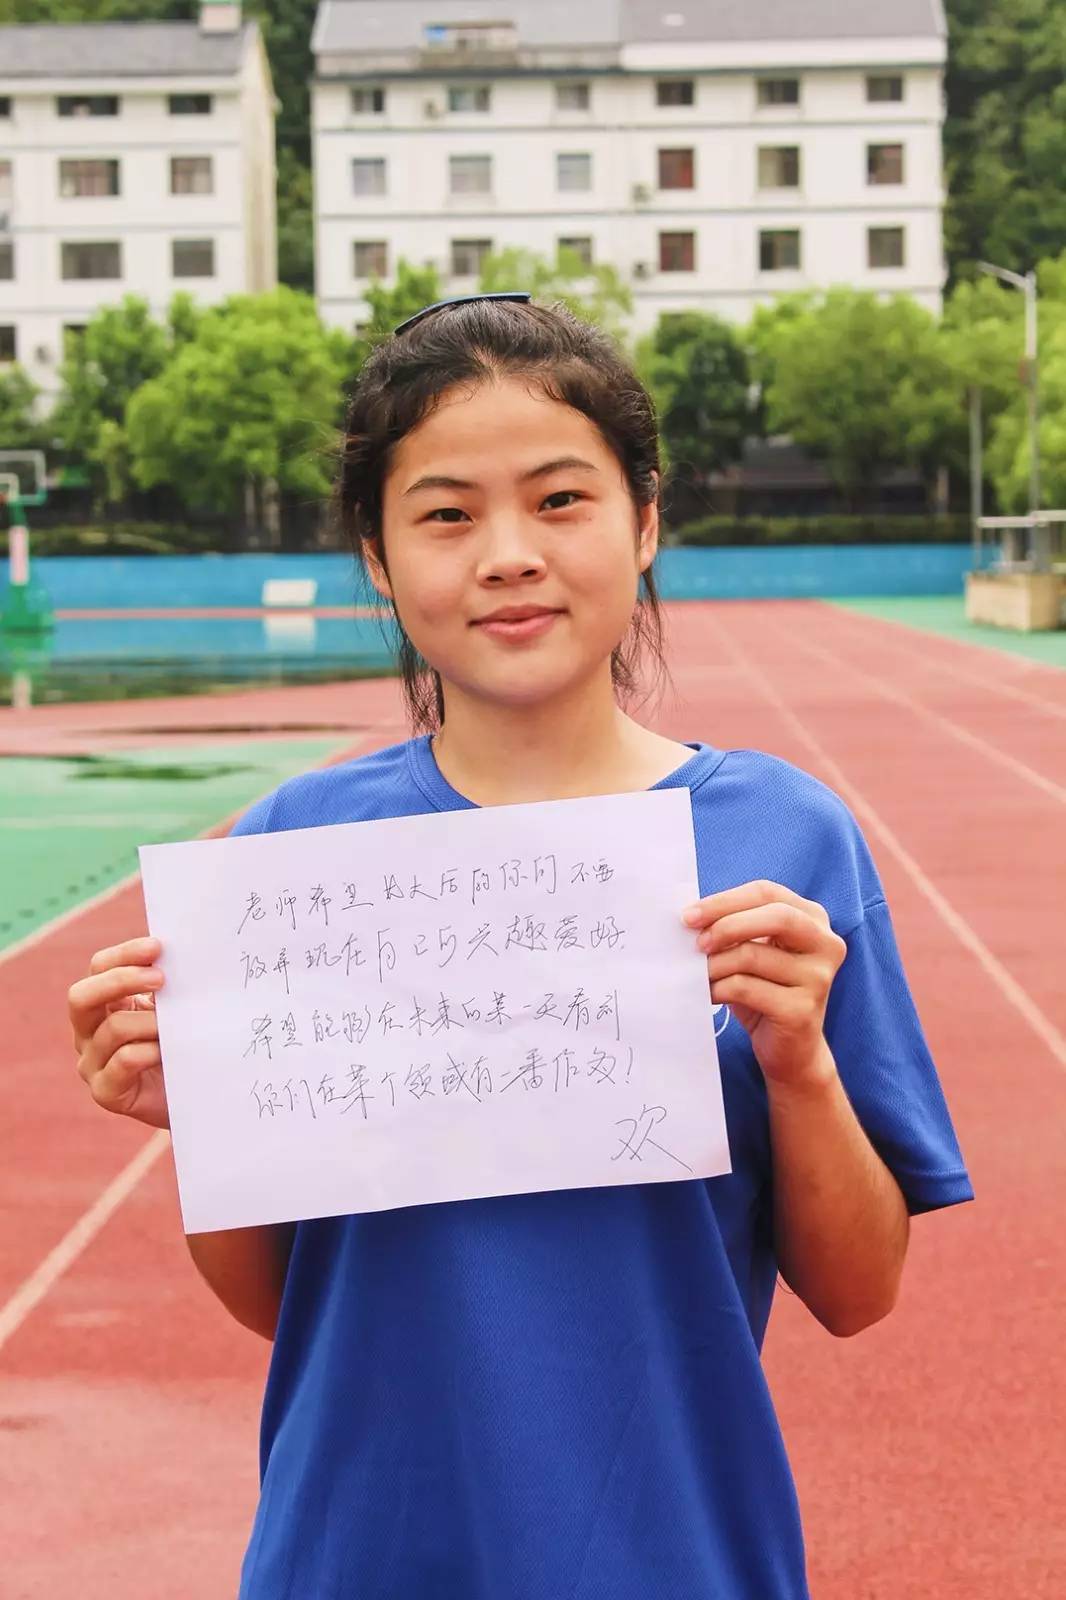 老师希望长大后的你们不要
放弃现在自己的兴趣爱好.
希望能够在未来的某一天看到
你们在某个领域有一番作为!
欢